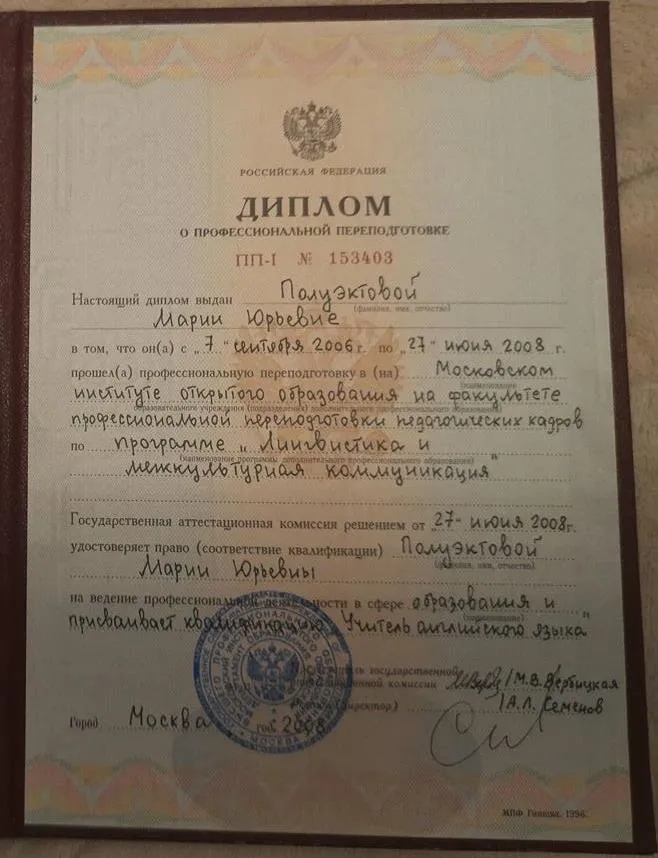 РОССИЙСКАЯ ФЕДЕРАЦИЯ
ДИПЛОМ
О ПРОФЕССИОНАЛЬНОЙ ПЕРЕПОДГОТОВКЕ
ПП-I № 153403
Настоящий диплом выдан Полуэктовой
(фамилия, имя, отчество)
Марии Юрьевне
в том, что он(а) с „7" сентября 2006 г. по „27" июня 2008 г.
прошел(а) профессиональную переподготовку в (на) Московском
(наименование
институте открытого образования на факультете
образовательного учреждения (подразделения) дополнительного профессионального образования)
профессиональной переподготовки педагогических кадров
по программе „Лингвистика и
(наименование программы дополнительного профессионального образования)
межкультурная коммуникация"
Государственная аттестационная комиссия решением от „27" июня 2008г.
удостоверяет право (соответствие квалификации) Полуэктовой
(фамилия, имя, отчество)
Марии Юрьевны
на ведение профессиональной деятельности в сфере образования и
(наименование)
присваивает квалификацию „Учитель английского языка"
государственной
комиссии /М.В. Вербицкая
(директор) /А.Л. Семенов
Город Москва год 2008
МОСКВА
МПФ Гознака. 1996.